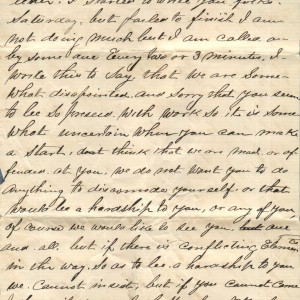 I started to write you folks
Saturday, but failed to finish I am
not doing much but I am called on
by some one Every two or 3 minutes, I
wrote this to Say, that we are Some-
what disapointed. and Sorry that you seem
to be So pressed. with work so, it is some
what uncertain when you can make
a start, dont think that we are mad. or of
fended. at you, we do not want you to do
anything to discommode yourself. or that
would be a hardship to you, or any of you,
of course we would like to see you, one
and. all. but if there is conflicting Elements
in the way, So as to be a hardship to you
we. Cannot insist, but if you Cannot Come